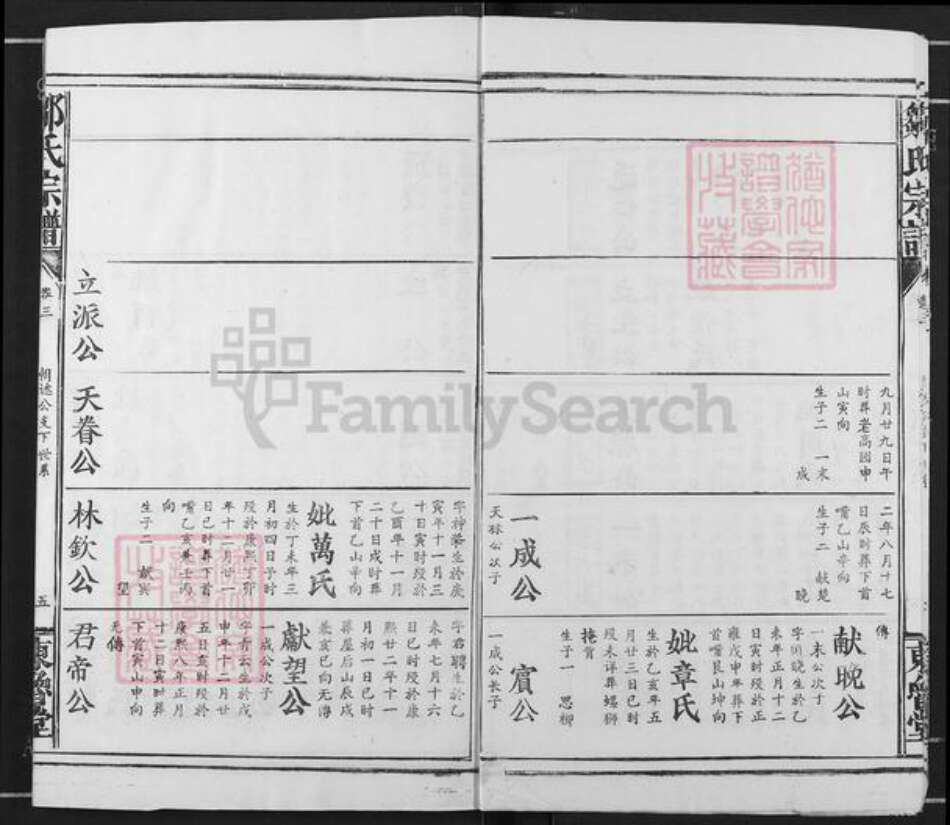 鄒氏宗譜
卷三
九月廿九日午
时葬老高园申
山寅向
生子二 一末
成
二年八月十七
日辰时葬下首
嘴乙山辛向
生子二 献楚
晚
一成公
天标公次子
傳
献晚公
一末公次子
字
晚生於乙
未年正月十二
日寅时殁於正
雍戊申年葬下
首嘴艮山坤向
妣章氏
生於乙亥年五
月廿三日巳时
殁未详葬螺狮
掩背
生子一 思柳
賔公
一成公长子
東魯堂
FamilySearch
立派公
天眷公
林欽公
字神榮生於庚
寅年十一月三
十日寅时殁於
乙酉年十一月
二十日戌时葬
下首乙山辛向
妣萬氏
生於丁未年三
月初四日子时
殁於康熙丁卯
年十二月廿一
日巳时葬下首
嘴乙亥兼
向
生子二 献兴
望
君帝公
字君聘生於乙
未年七月十六
日巳时殁於康
熙廿二年十一
月初一日巳时
葬屋后山辰戌
兼
巳向无傳
獻望公
一成公次子
字君云生於戊
申年十二月廿
五日亥时殁於
康熙八年正月
十二日寅时葬
下首寅山申向
无傳
鄒氏宗譜
卷三
朝遠公支下世系
五
東魯堂